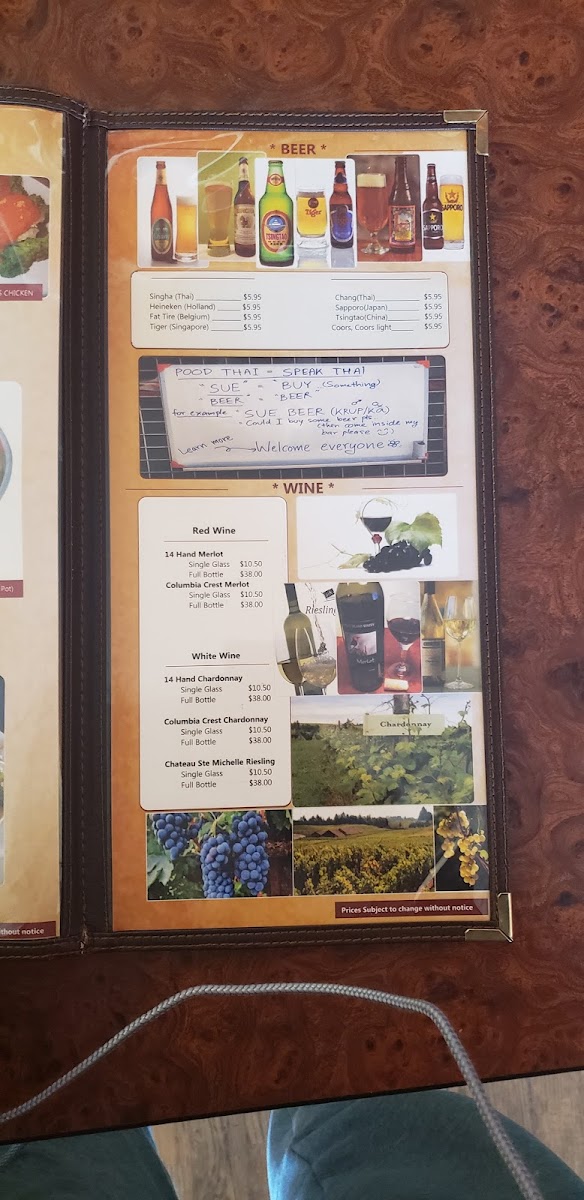 * BEER *
TSINGTAO
Tiger
SAPPORO
SAPPORO
Singha (Thai) $5.95
Heineken (Holland) $5.95
Fat Tire (Belgium) $5.95
Tiger (Singapore) $5.95
Chang(Thai) $5.95
Sapporo(Japan) $5.95
Tsingtao(China) $5.95
Coors, Coors light $5.95
POOD THAI = SPEAK THAI
"SUE" = "BUY" (Something)
"BEER" = "BEER"
for example "SUE BEER (KRUP/KA)
= Could I buy some beer pls
(then come inside my
bar please
Learn more → Welcome everyone
* WINE *
Red Wine
14 Hand Merlot
Single Glass $10.50
Full Bottle $38.00
Columbia Crest Merlot
Single Glass $10.50
Full Bottle $38.00
White Wine
14 Hand Chardonnay
Single Glass $10.50
Full Bottle $38.00
Columbia Crest Chardonnay
Single Glass $10.50
Full Bottle $38.00
Chateau Ste Michelle Riesling
Single Glass $10.50
Full Bottle $38.00
Riesling
Merlot
Chardonnay
Prices Subject to change without notice
CHICKEN
Pot)
thout notice